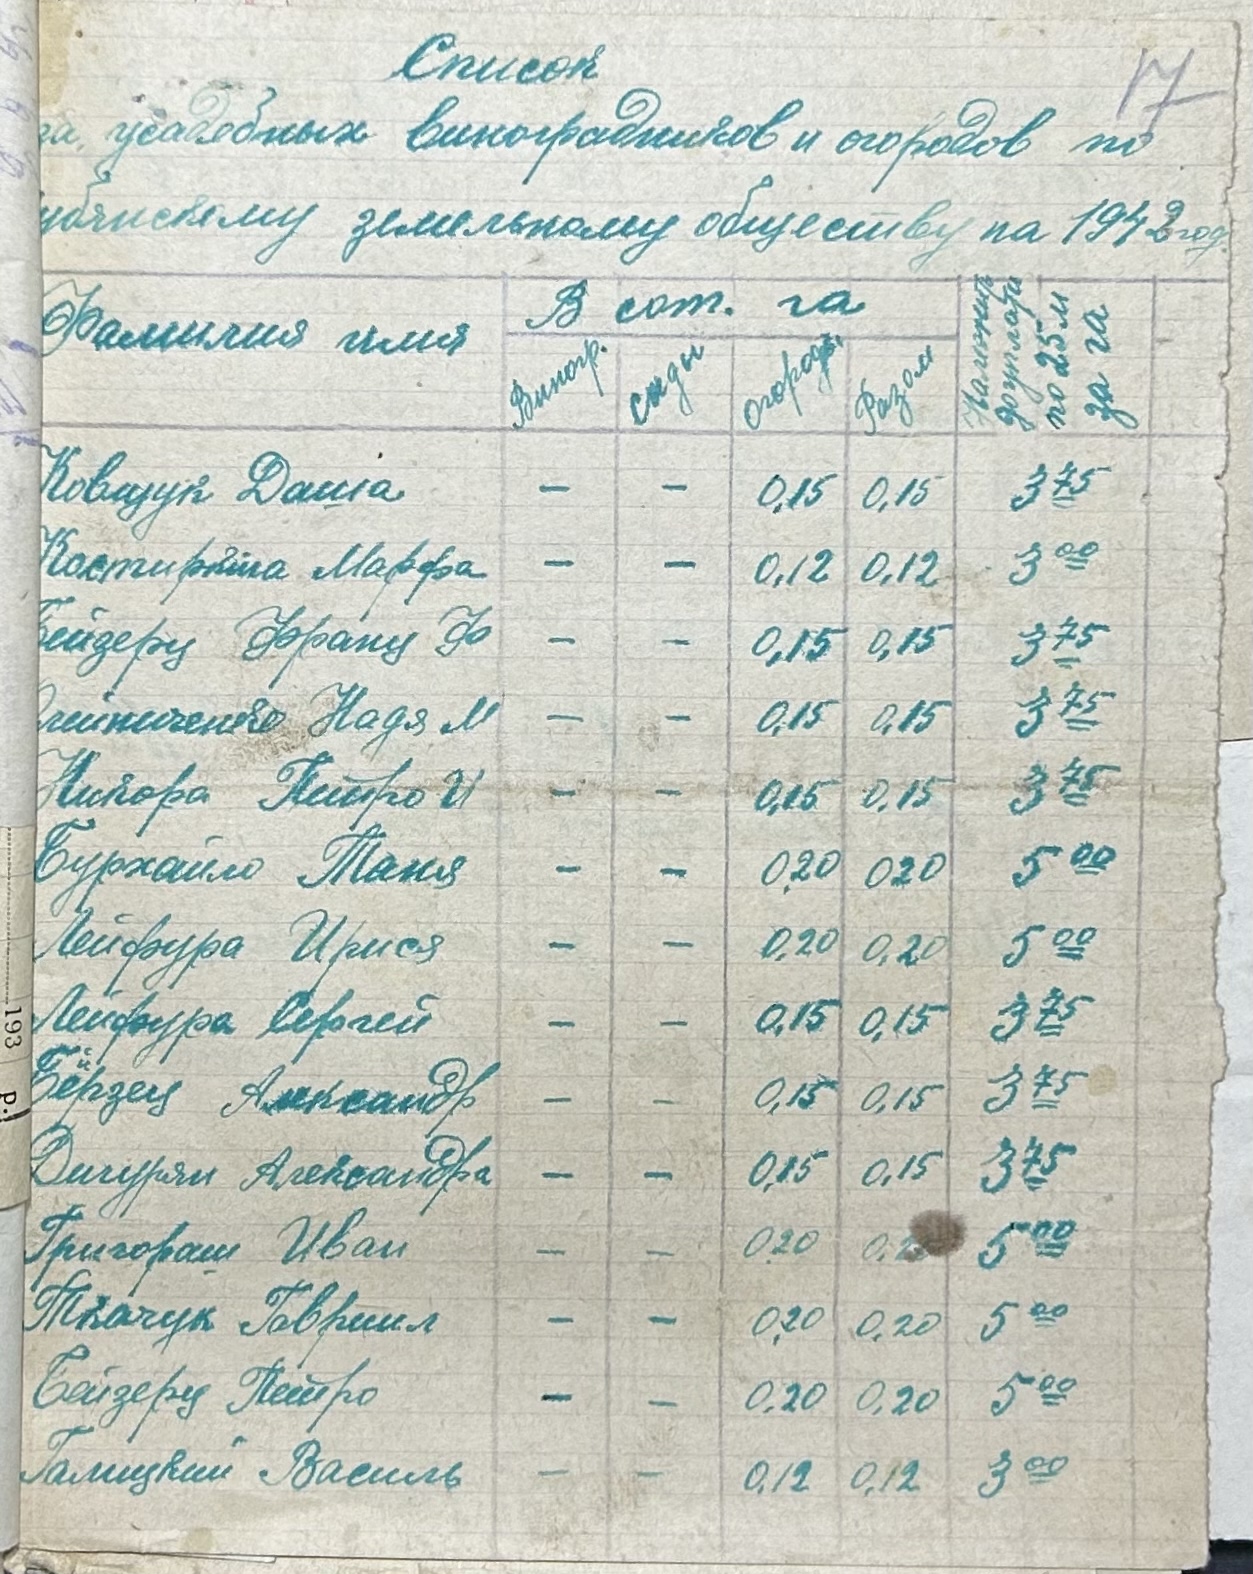 Список
17
за усадебных виноградников и огородов по
земельному обществу на 1942 год.
Фамилия имя
В сот. га
Виногр.
сады
огороды
Разом
по 25 м
за га
Ковщук Даша — — 0,15 0,15 3 75
Марфа — — 0,12 0,12 3 00
Бейзерц Франц Ф — — 0,15 0,15 3 75
Надя М — — 0,15 0,15 3 75
Никора Петро И — — 0,15 0,15 3 75
Бурхайло Таня — — 0,20 0,20 5 00
Лейфура Ирися — — 0,20 0,20 5 00
Лейфура Сергей — — 0,15 0,15 3 75
Александр — — 0,15 0,15 3 75
Дигурян Александра — — 0,15 0,15 3 75
Григораш Иван — — 0,20 5 00
Ткачук Гавриил — — 0,20 0,20 5 00
Бейзерц Петро — — 0,20 0,20 5 00
Галицкий Василь — — 0,12 0,12 3 00
193 р.